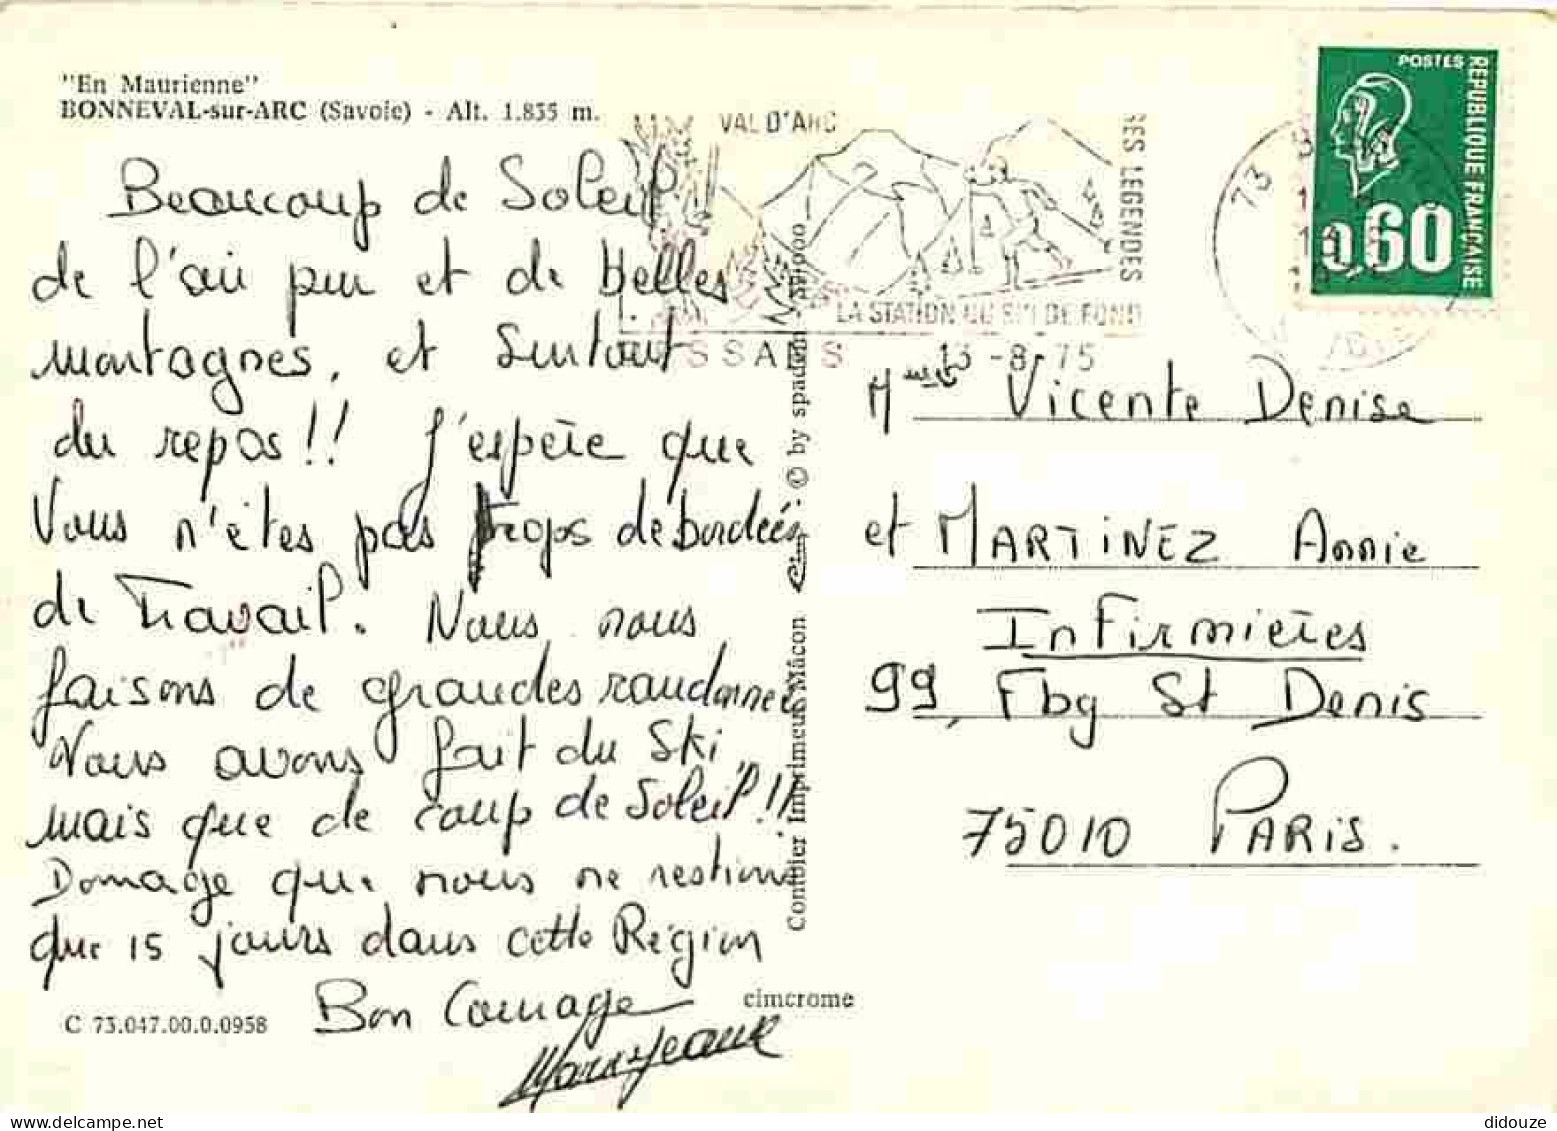 "En Maurienne"
BONNEVAL-sur-ARC (Savoie) - Alt. 1.835 m.
Beaucoup de Soleil
de l'air pur et de belles
montagnes, et Surtout
du repos!! J'espère que
Vous n'êtes pas trops debordées
de Travail. Nous nous
faisons de grandes randonnées
Nous avons fait du Ski,
mais que de coup de Soleil!!
Domage que nous ne restions
que 15 jours dans cette Région
Bon Courage
C 73.047.00.0.0958
cimcrome
Combier Imprimeur Mâcon
© by spadem
VAL D'ARC
LEGENDES
LA STATION DU SKI DE FOND
13-8-75
73
POSTES
REPUBLIQUE FRANÇAISE
0,60
Mmes Vicente Denise
et MARTINEZ Annie
Infirmières
99, Fbg St Denis
75010 PARIS.
didouze